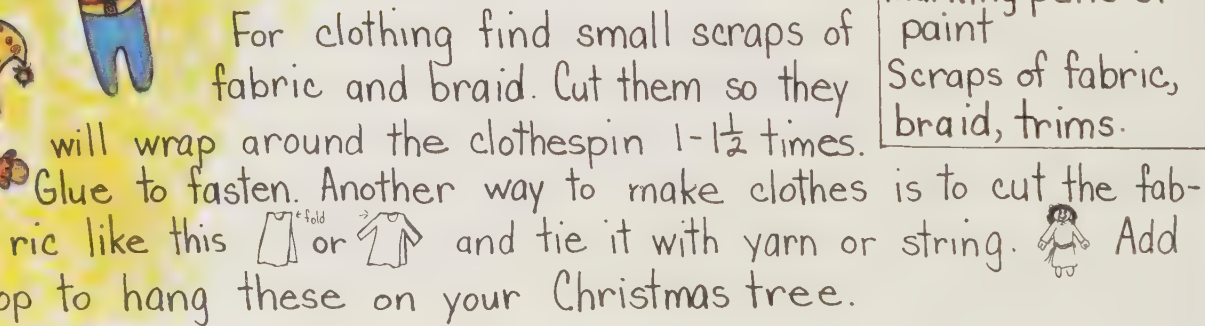 For clothing find small scraps of
fabric and braid. Cut them so they
will wrap around the clothespin 1-1½ times.
Glue to fasten. Another way to make clothes is to cut the fab-
ric like this ←fold or → and tie it with yarn or string. Add
to hang these on your Christmas tree.
paint
Scraps of fabric,
braid, trims.